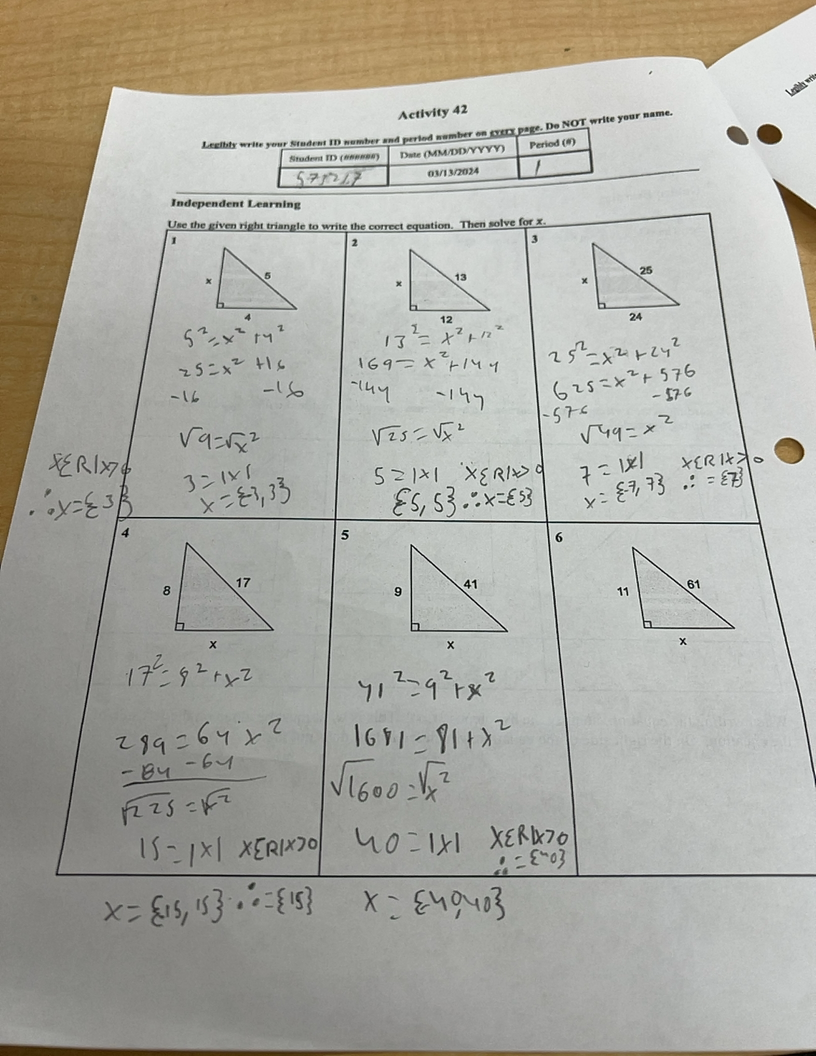 Activity 42
Legibly write your Student ID number and period number on every page. Do NOT write your name.
Student ID (######) Date (MM/DD/YYYY) Period (#)
03/13/2024 1
Independent Learning
Use the given right triangle to write the correct equation. Then solve for x.
1
x 5
4
5² = x² + 4²
25 = x² + 16
-16 -16
√9 = √x²
3 = |x|
x = {3, 3}
XƐR|X>0
∴ x = {3}
2
x 13
12
13² = x² + 12²
169 = x² + 144
-144 -144
√25 = √x²
5 = |x| XƐR|X>0
{5, 5} ∴ x = {5}
3
x 25
24
25² = x² + 24²
625 = x² + 576
-576 -576
√49 = x²
7 = |x| XƐR|X>0
x = {7, 7} ∴ = {7}
4
8 17
x
17² = 8² + x²
289 = 64 x²
-64
√225 = √x²
15 = |x| XƐR|X>0
x = {15, 15} ∴ = {15}
5
9 41
x
41² = 9² + x²
1681 = 81 + x²
√1600 = √x²
40 = |x| XƐR|X>0
∴ = {40}
x = {40, 40}
6
11 61
x